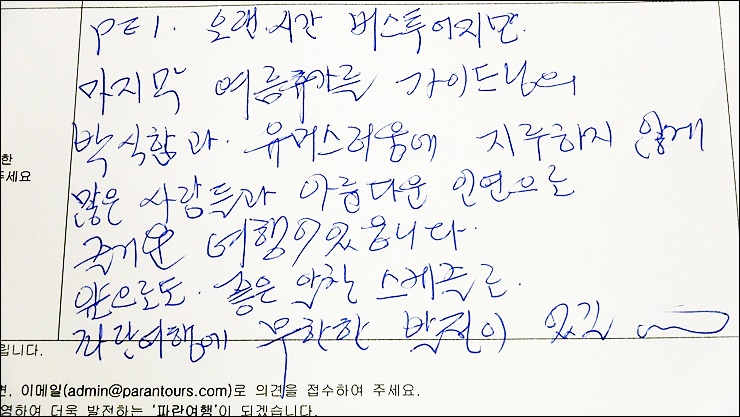 PEI. 오랜.시간 버스투어지만
마지막 여름휴가를 가이드님의
박식함과. 유머스러움에 지루하지 않게
많은 사람들과 아름다운 인연으로
즐거운 여행이있읍니다.
앞으로도. 좋은 알찬 스케쥴로.
파란여행에 무한한 발전이 있길
한
주세요
립니다.
면, 이메일(admin@parantours.com)로 의견을 접수하여 주세요.
영하여 더욱 발전하는 '파란여행'이 되겠습니다.